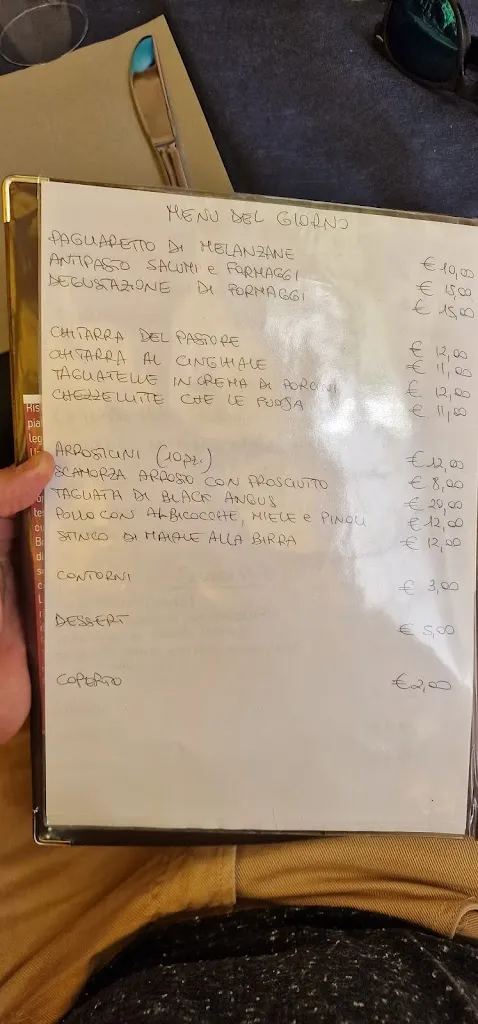 MENU DEL GIORNO
PAGLIARETTO DI MELANZANE € 10,00
ANTIPASTO SALUMI e FORMAGGI € 15,00
DEGUSTAZIONE DI FORMAGGI € 15,00
CHITARRA DEL PASTORE € 12,00
CHITARRA AL CINGHIALE € 11,00
TAGLIATELLE IN CREMA DI PORCINI € 12,00
CHEZZELLITTE CHE LE FUOJA € 11,00
ARROSTICINI (10pz.) € 12,00
SCAMORZA ARROSTO CON PROSCIUTTO € 8,00
TAGLIATA DI BLACK ANGUS € 20,00
POLLO CON ALBICOCCHE, MIELE e PINOLI € 12,00
STINCO DI MAIALE ALLA BIRRA € 12,00
CONTORNI € 3,00
DESSERT € 5,00
COPERTO € 2,00